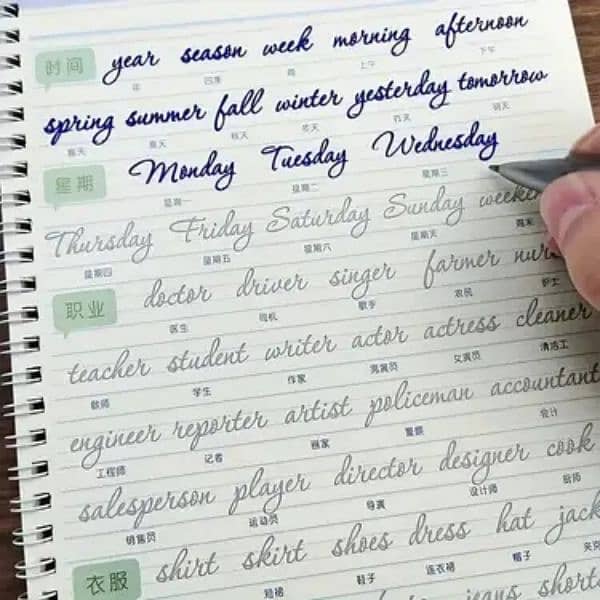 时间 year season week morning afternoon
年 四季 周 上午 下午
spring summer fall winter yesterday tomorrow
春天 夏天 秋天 冬天 昨天 明天
星期 Monday Tuesday Wednesday
星期一 星期二 星期三
Thursday Friday Saturday Sunday
星期四 星期五 星期六 星期天 周末
职业 doctor driver singer farmer
医生 司机 歌手 农民 护士
teacher student writer actor actress cleaner
教师 学生 作家 男演员 女演员 清洁工
engineer reporter artist policeman accountant
工程师 记者 画家 警察 会计
salesperson player director designer cook
销售员 运动员 导演 设计师 厨师
衣服 shirt skirt shoes dress hat
短裙 鞋子 连衣裙 帽子 夹克
jeans shorts